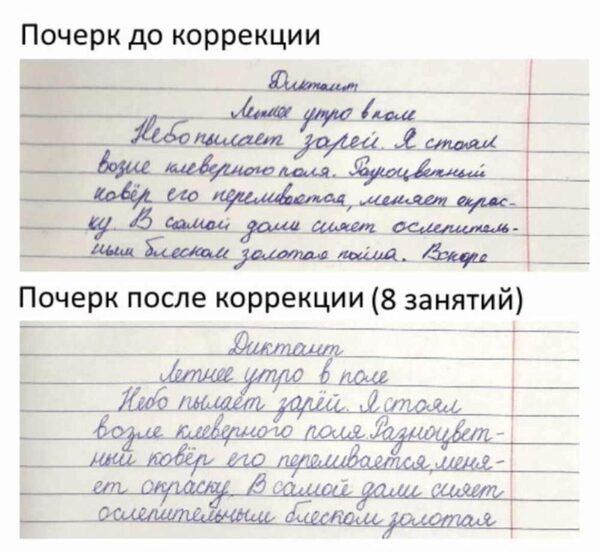 Почерк до коррекции
Диктант
Летнее утро в поле
Небо пылает зарёй. Я стоял
возле клеверного поля. Разноцветный
ковёр его переливается, меняет окрас-
ку. В самой дали сияет ослепитель-
ным блеском золотая пойма. Вскоре
Почерк после коррекции (8 занятий)
Диктант
Летнее утро в поле
Небо пылает зарёй. Я стоял
возле клеверного поля. Разноцвет-
ный ковёр его переливается, меня-
ет окраску. В самой дали сияет
ослепительным блеском золотая